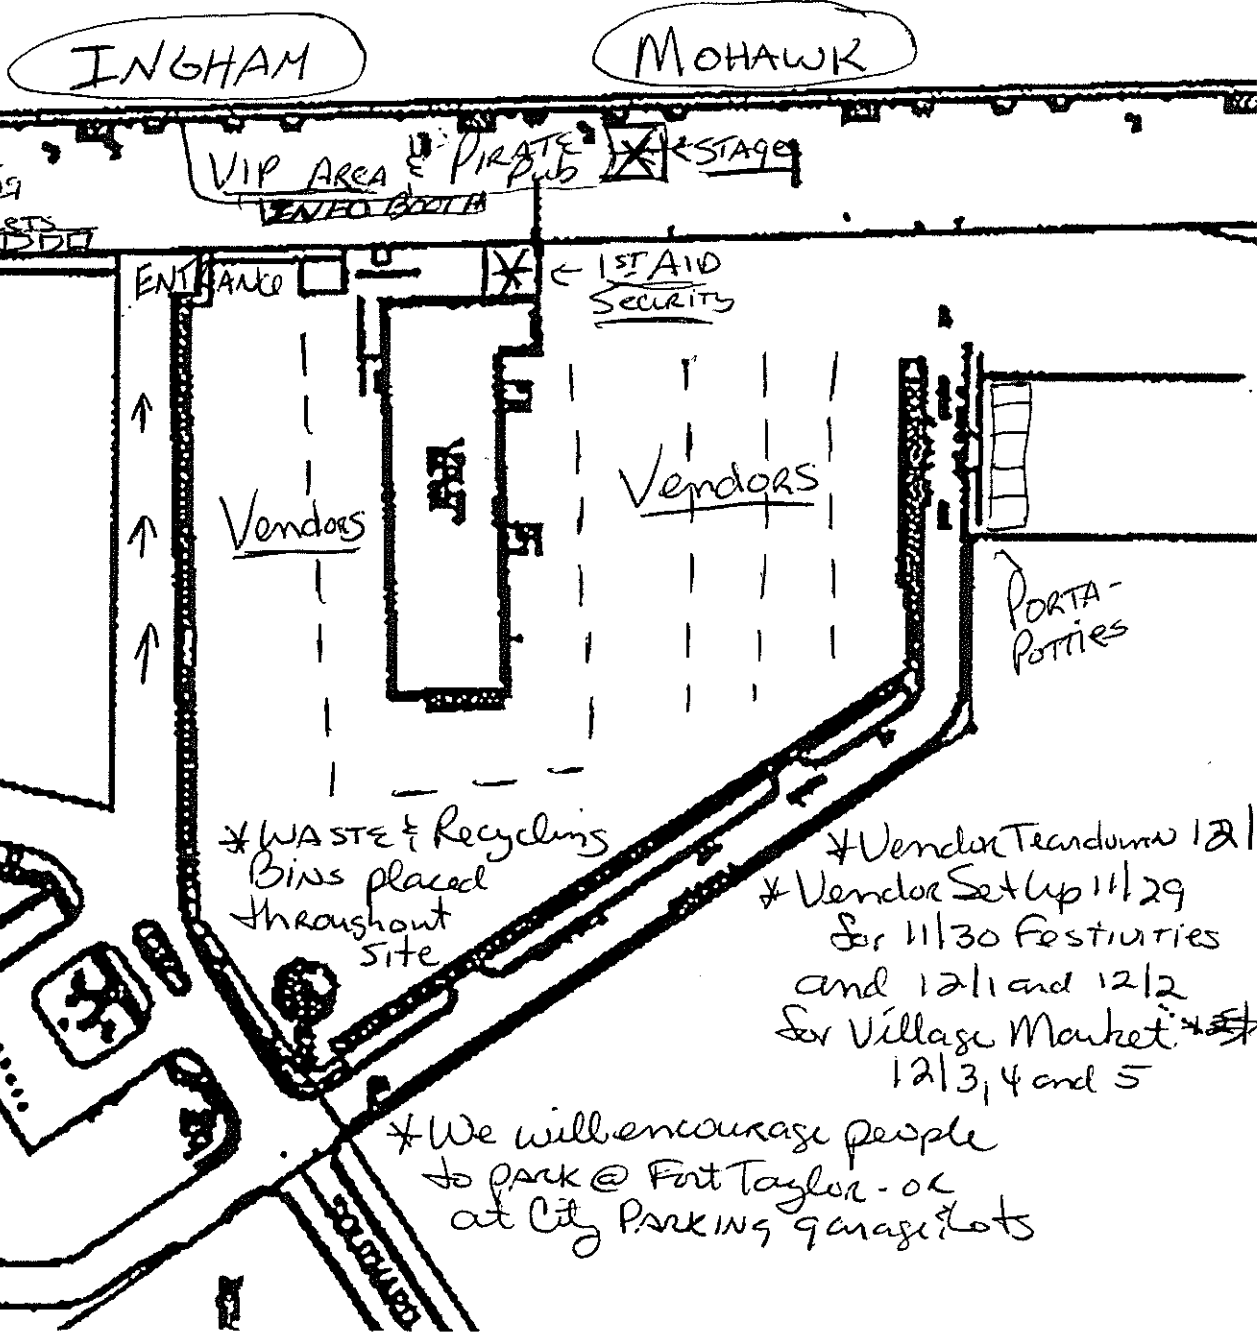 INGHAM
MOHAWK
VIP AREA & PIRATE
Pub
← STAGE
INFO BOOTH
ENTRANCE
← 1ST AID
SECURITY
Vendors
Vendors
PORTA-
POTTIES
*WASTE & Recycling
Bins placed
throughout
site
*Vendor Teardown 12/
*Vendor Set Up 11/29
for 11/30 Festivities
and 12/1 and 12/2
for Village Market
12/3, 4 and 5
*We will encourage people
to PARK @ Fort Taylor - or
at City PARKING garage/lots
SOUTHARD